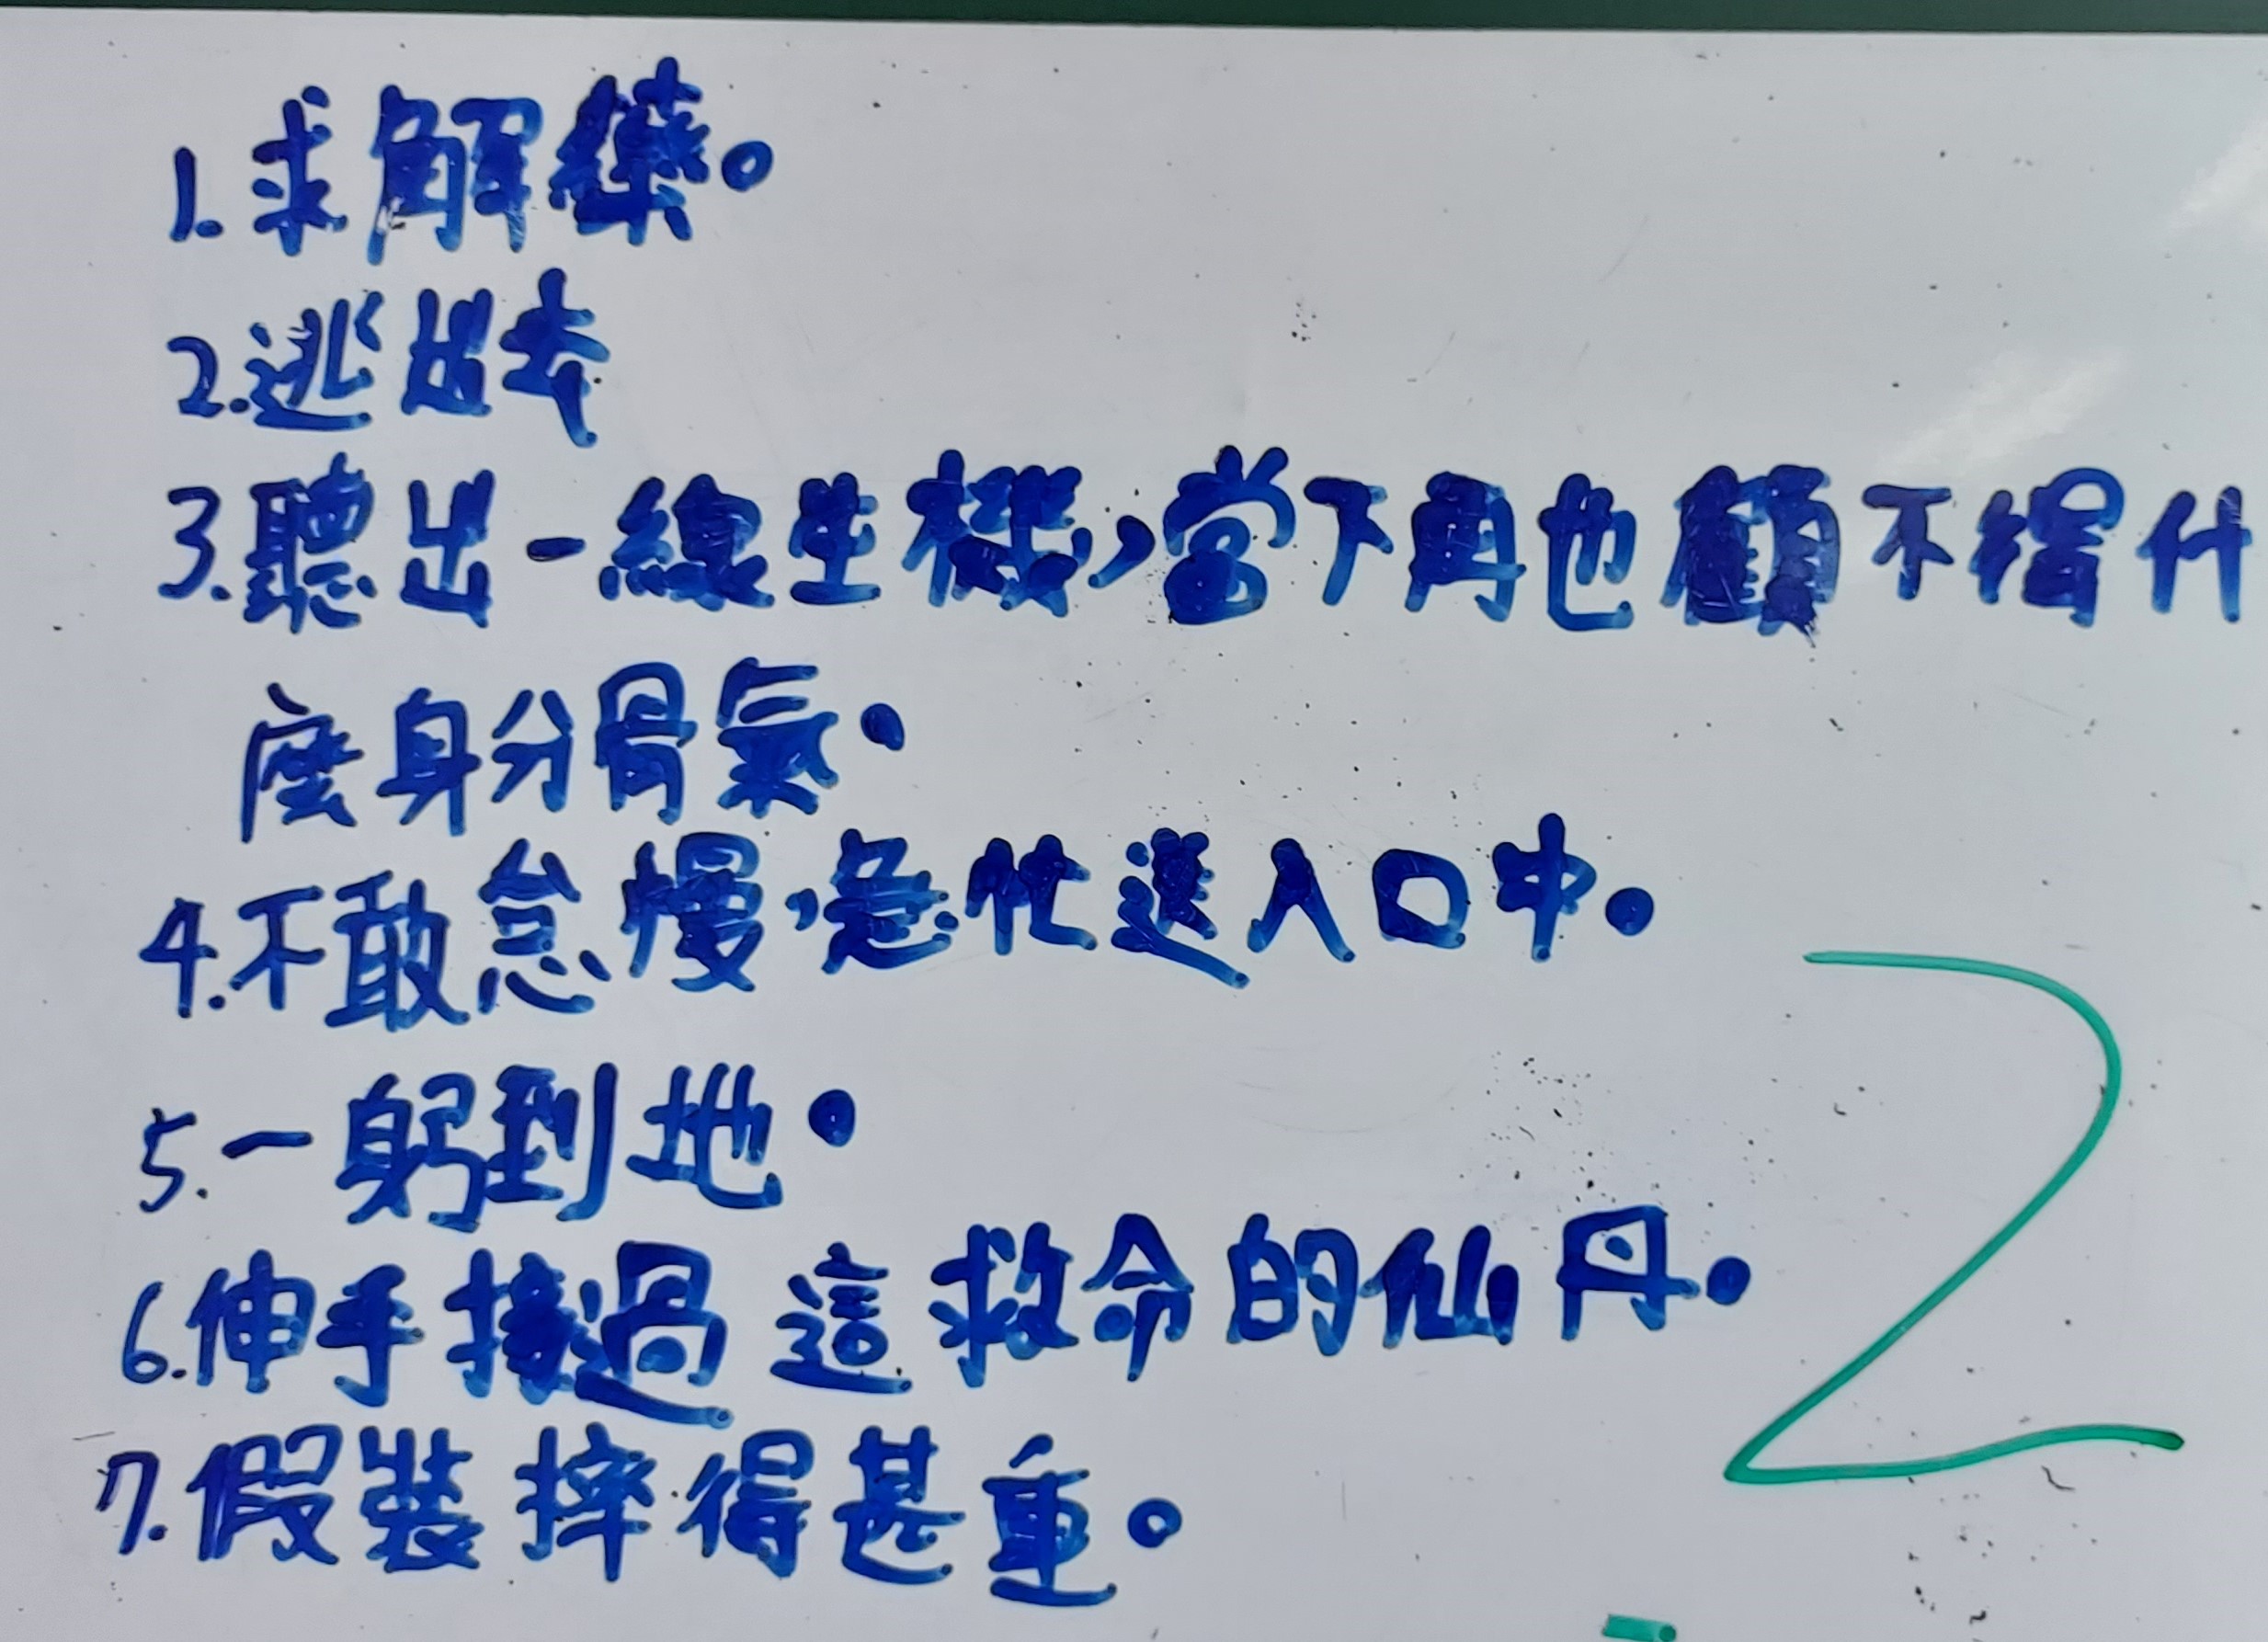 1.求解藥。
2.逃出去
3.聽出一線生機，當下再也顧不得什
麼身分骨氣。
4.不敢怠慢，急忙送入口中。
5.一躬到地。
6.伸手接過這救命的仙丹。
7.假裝摔得甚重。
2